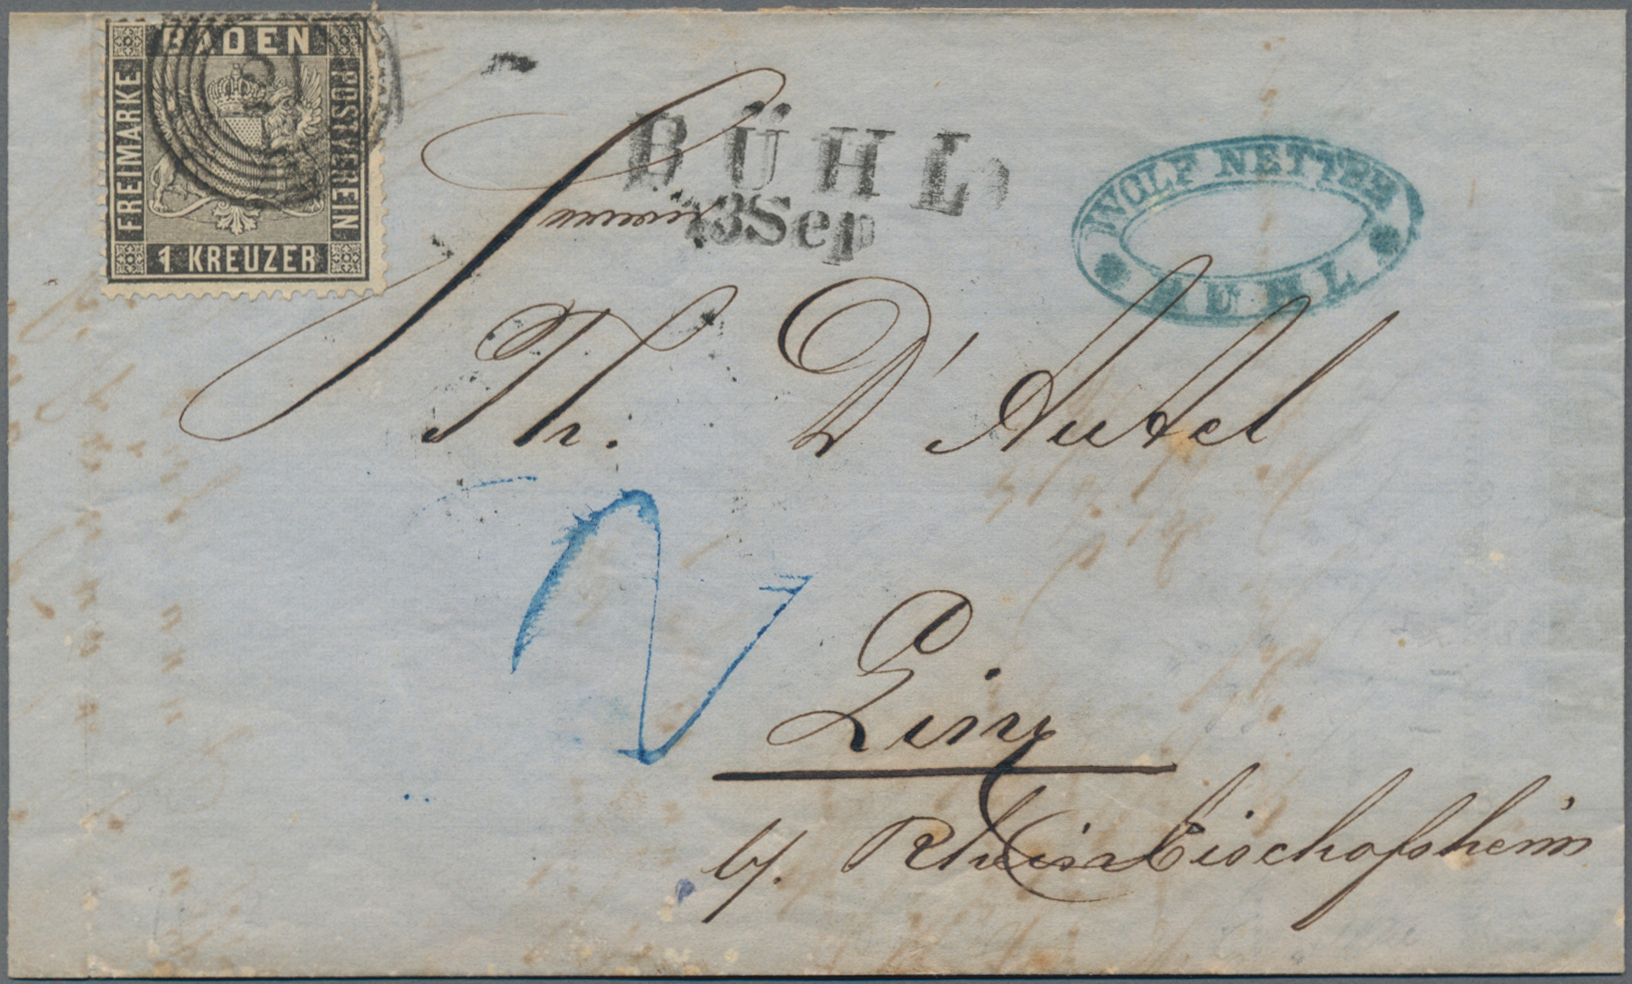 BADEN
FREIMARKE
POSTVEREIN
1 KREUZER
BÜHL
13 Sep
WOLF NETTER
BUHL
Th. D'Autel
2
Linx
b/. Rheinbischofsheim